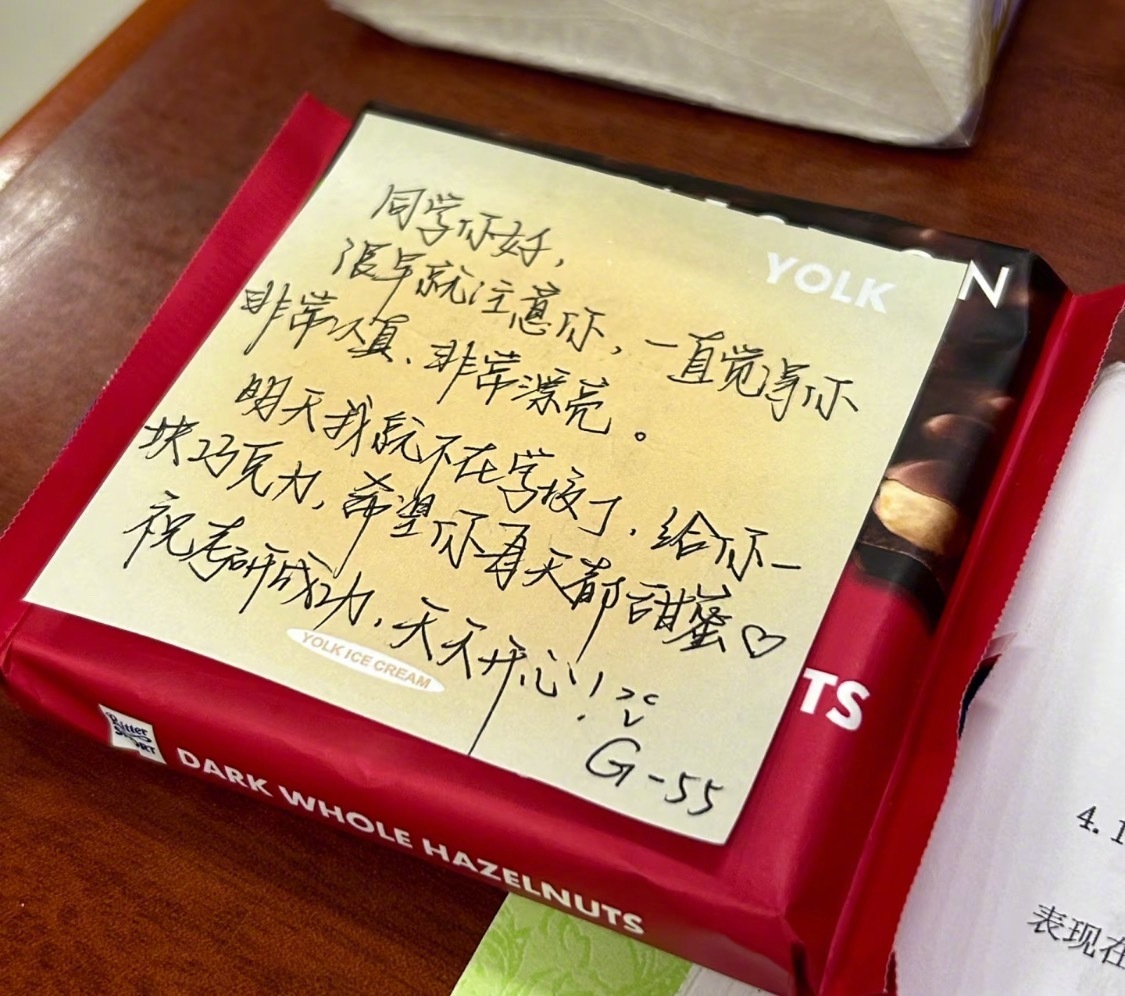 YOLK
N
同学你好，
很早就注意你，一直觉得你
非常认真、非常漂亮。
明天我就不在学校了，给你一
块巧克力，希望你每天都甜蜜♡
祝考研成功，天天开心！
G-55
YOLK ICE CREAM
TS
Ritter
SPORT
DARK WHOLE HAZELNUTS
4.1
表现在